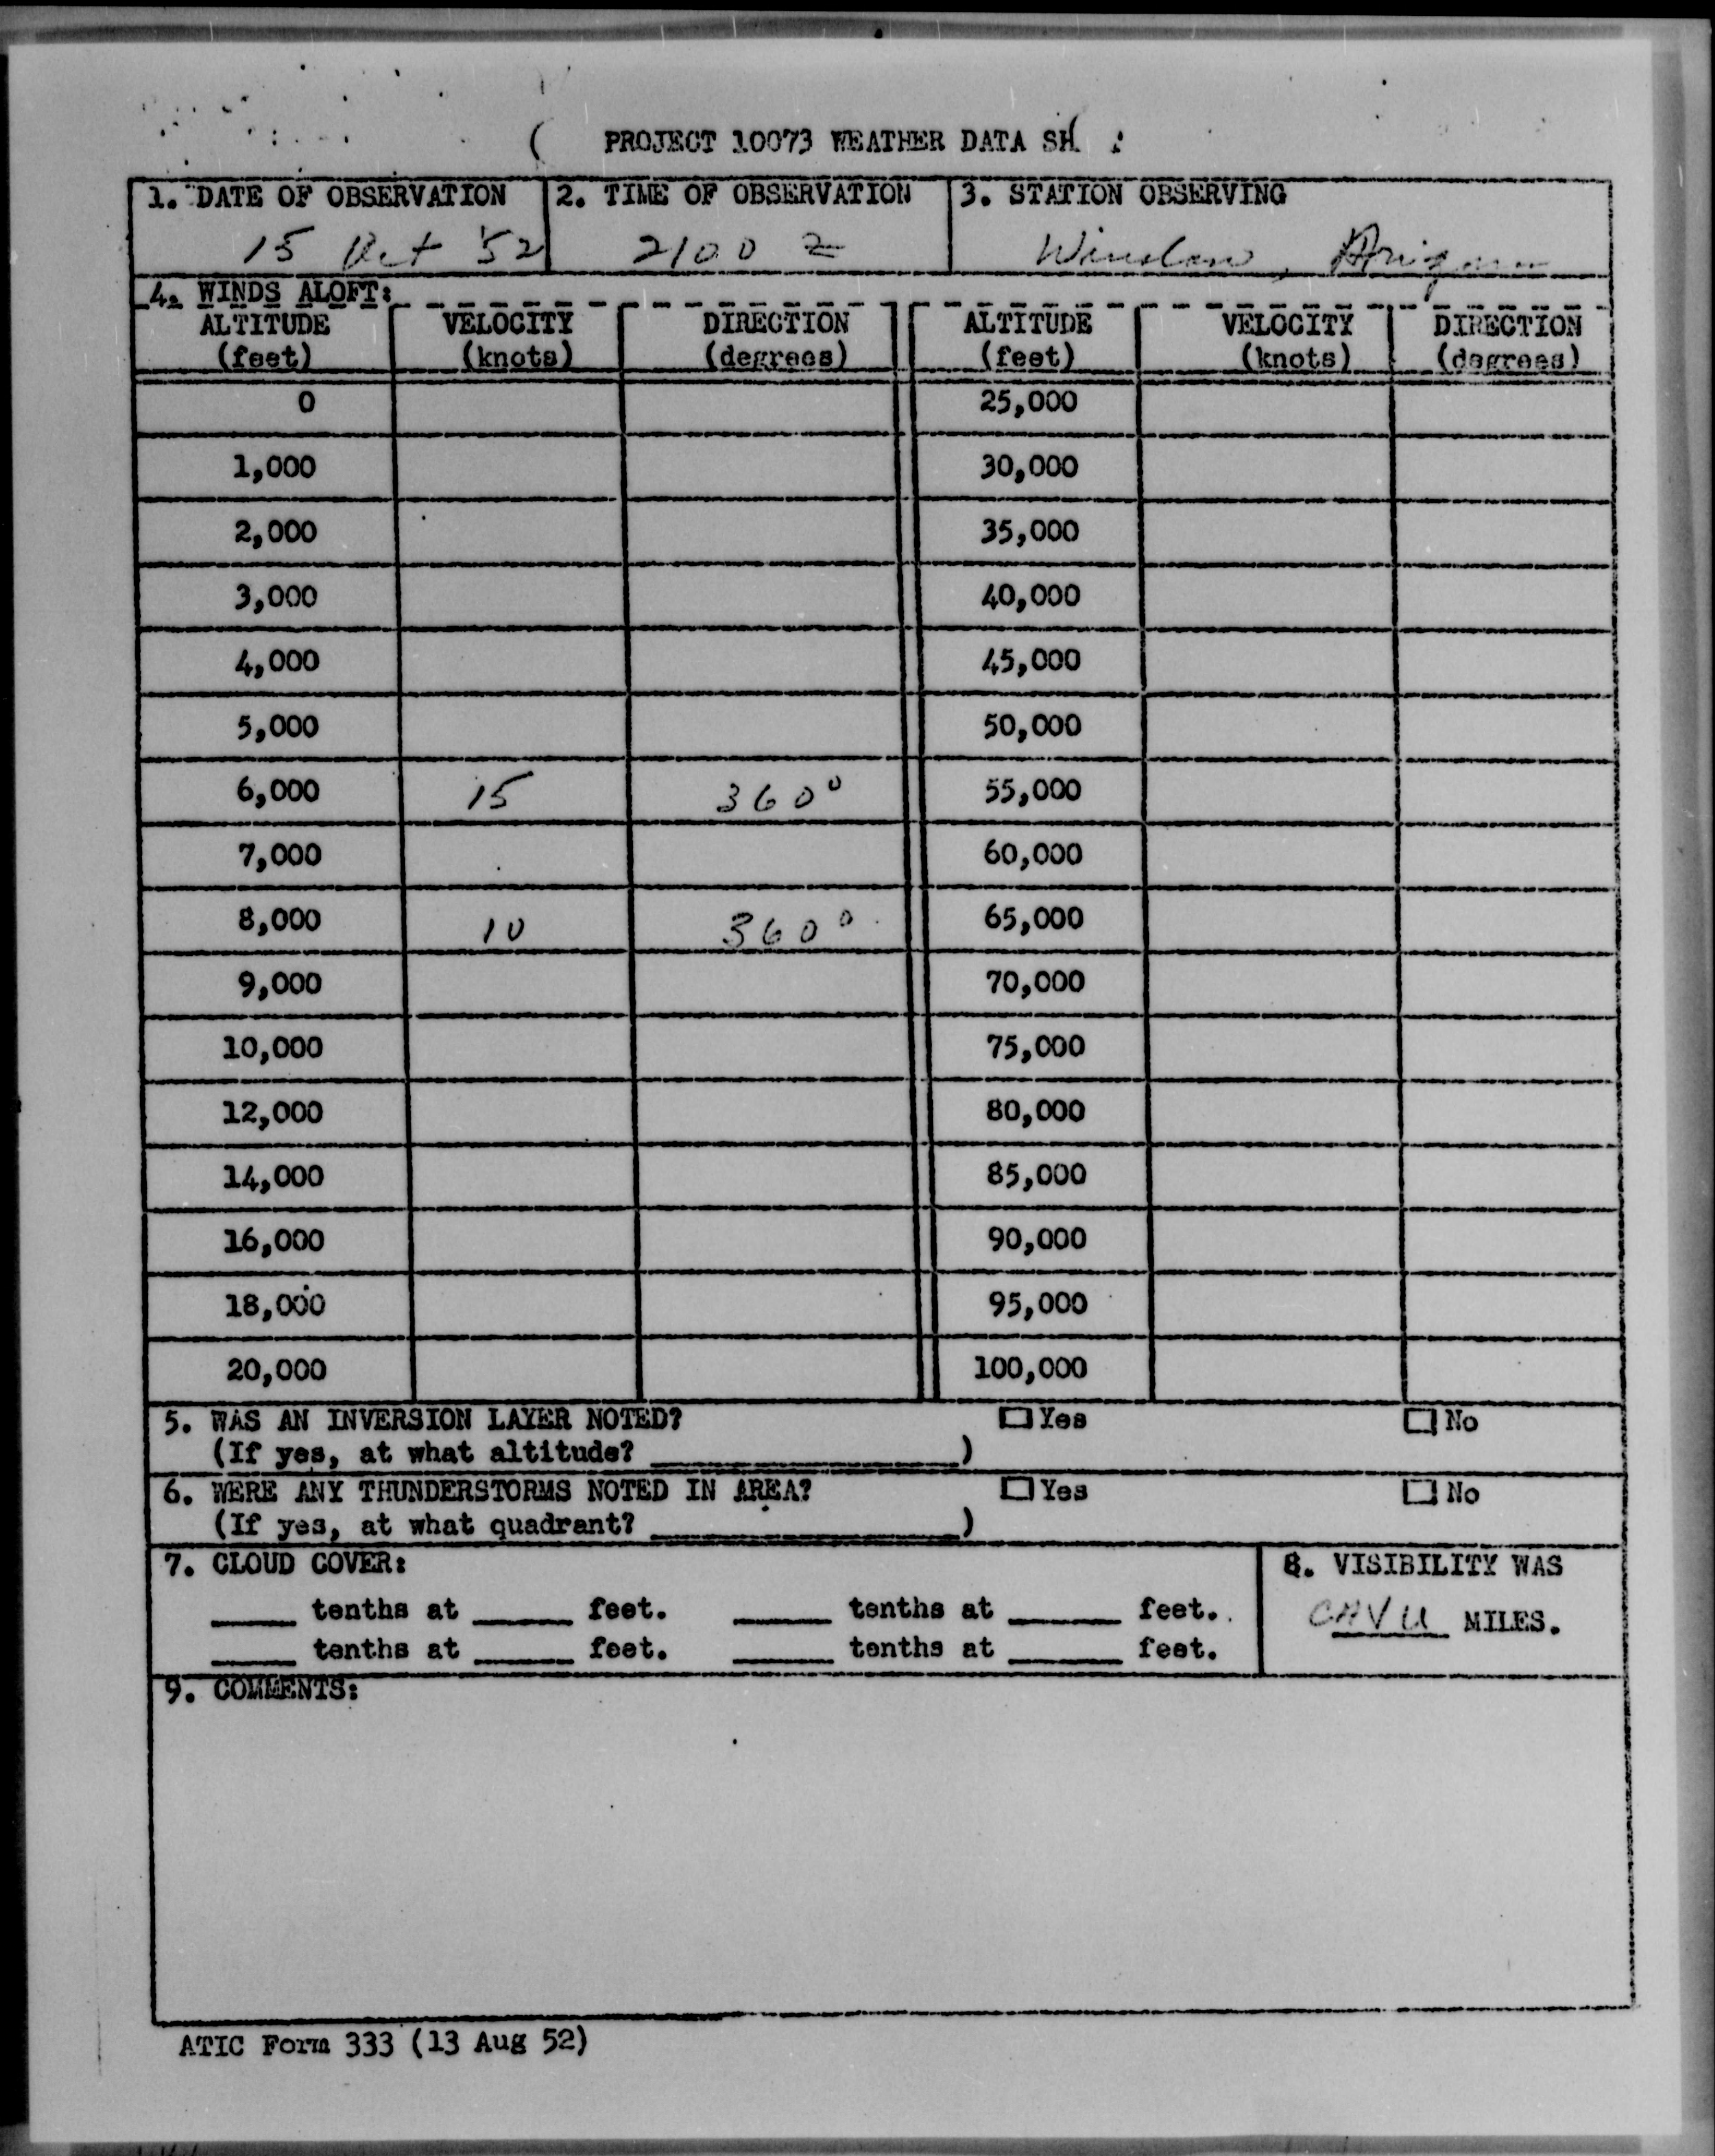 PROJECT 10073 WEATHER DATA SH
1. DATE OF OBSERVATION 2. TIME OF OBSERVATION 3. STATION OBSERVING
15 Oct '52 2100 Z Winslow, Arizona
4. WINDS ALOFT:
ALTITUDE VELOCITY DIRECTION ALTITUDE VELOCITY DIRECTION
(feet) (knots) (degrees) (feet) (knots) (degrees)
0 25,000
1,000 30,000
2,000 35,000
3,000 40,000
4,000 45,000
5,000 50,000
6,000 15 360° 55,000
7,000 60,000
8,000 10 360° 65,000
9,000 70,000
10,000 75,000
12,000 80,000
14,000 85,000
16,000 90,000
18,000 95,000
20,000 100,000
5. WAS AN INVERSION LAYER NOTED? Yes No
(If yes, at what altitude? )
6. WERE ANY THUNDERSTORMS NOTED IN AREA? Yes No
(If yes, at what quadrant? )
7. CLOUD COVER: 8. VISIBILITY WAS
tenths at feet. tenths at feet. CAVU MILES.
tenths at feet. tenths at feet.
9. COMMENTS:
ATIC Form 333 (13 Aug 52)